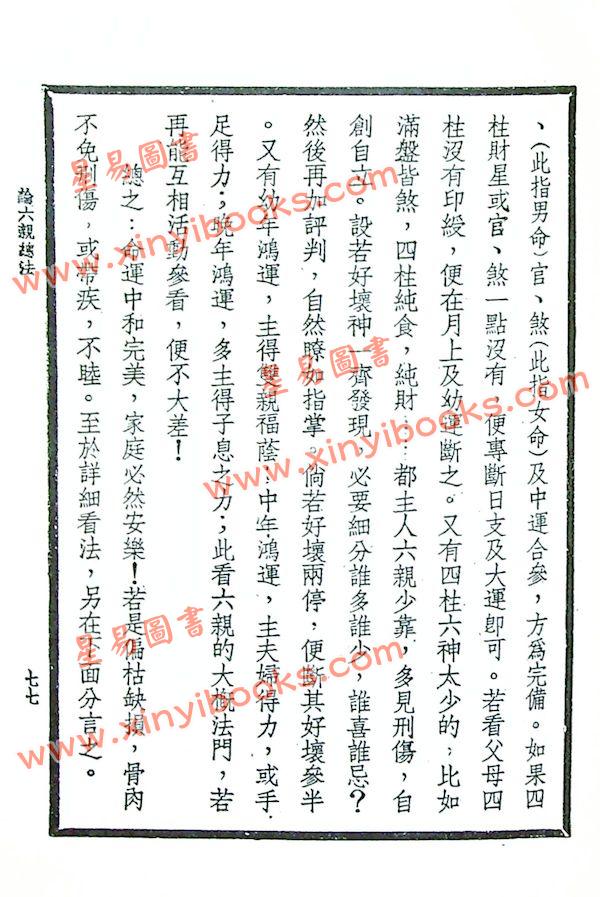 、(此指男命)官、煞(此指女命)及中運合參，方爲完備。如果四
柱財星或官、煞一點沒有，便專斷日支及大運卽可。若看父母四
柱沒有印綬，便在月上及幼運斷之。又有四柱六神太少的，比如
滿盤皆煞，四柱純食，純財…都主人六親少靠，多見刑傷，自
創自立。設若好壞神一齊發現，必要細分誰多誰少，誰喜誰忌？
然後再加評判，自然瞭如指掌。倘若好壞兩停，便斷其好壞參半
。又有幼年鴻運，主得雙親福蔭，中年鴻運，主夫婦得力，或手
足得力；晚年鴻運，多主得子息之力；此看六親的大槪法門，若
再能互相活動參看，便不大差！
總之：命運中和完美，家庭必然安樂！若是偏枯缺損，骨肉
不免刑傷，或帶疾，不睦。至於詳細看法，另在下面分言之。
論六親總法
七七
星易圖書
www.xinyibooks.com
星易圖書
www.xinyibooks.com
星易圖書
www.xinyibooks.com